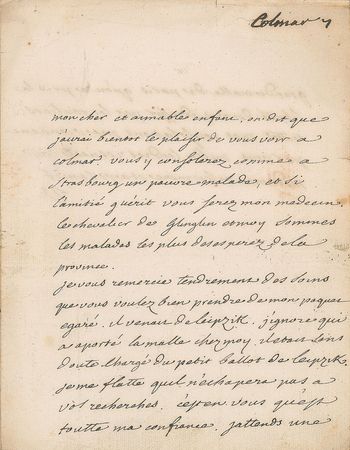 Colmar 7
mon cher et aimable enfant, on dit que
j'aurai bientot le plaisir de vous voir a
colmar vous y consolerez comme a
strasbourg un pauvre malade, et si
l'amitié guerit vous serez mon medecin
le chevalier de Glinglin et moy sommes
les malades les plus desesperez de la
province.
je vous remercie tendrement des soins
que vous voulez bien prendre de mon paquet
egaré. il venait de leipzik. j'ignore qui
a aporté la malle chez moy, il etait sans
doute chargé du petit ballot de leipzik.
je me flatte qu'il n'échapera pas a
vos recherches. c'est en vous qu'est
toutte ma confiance. j'attends une